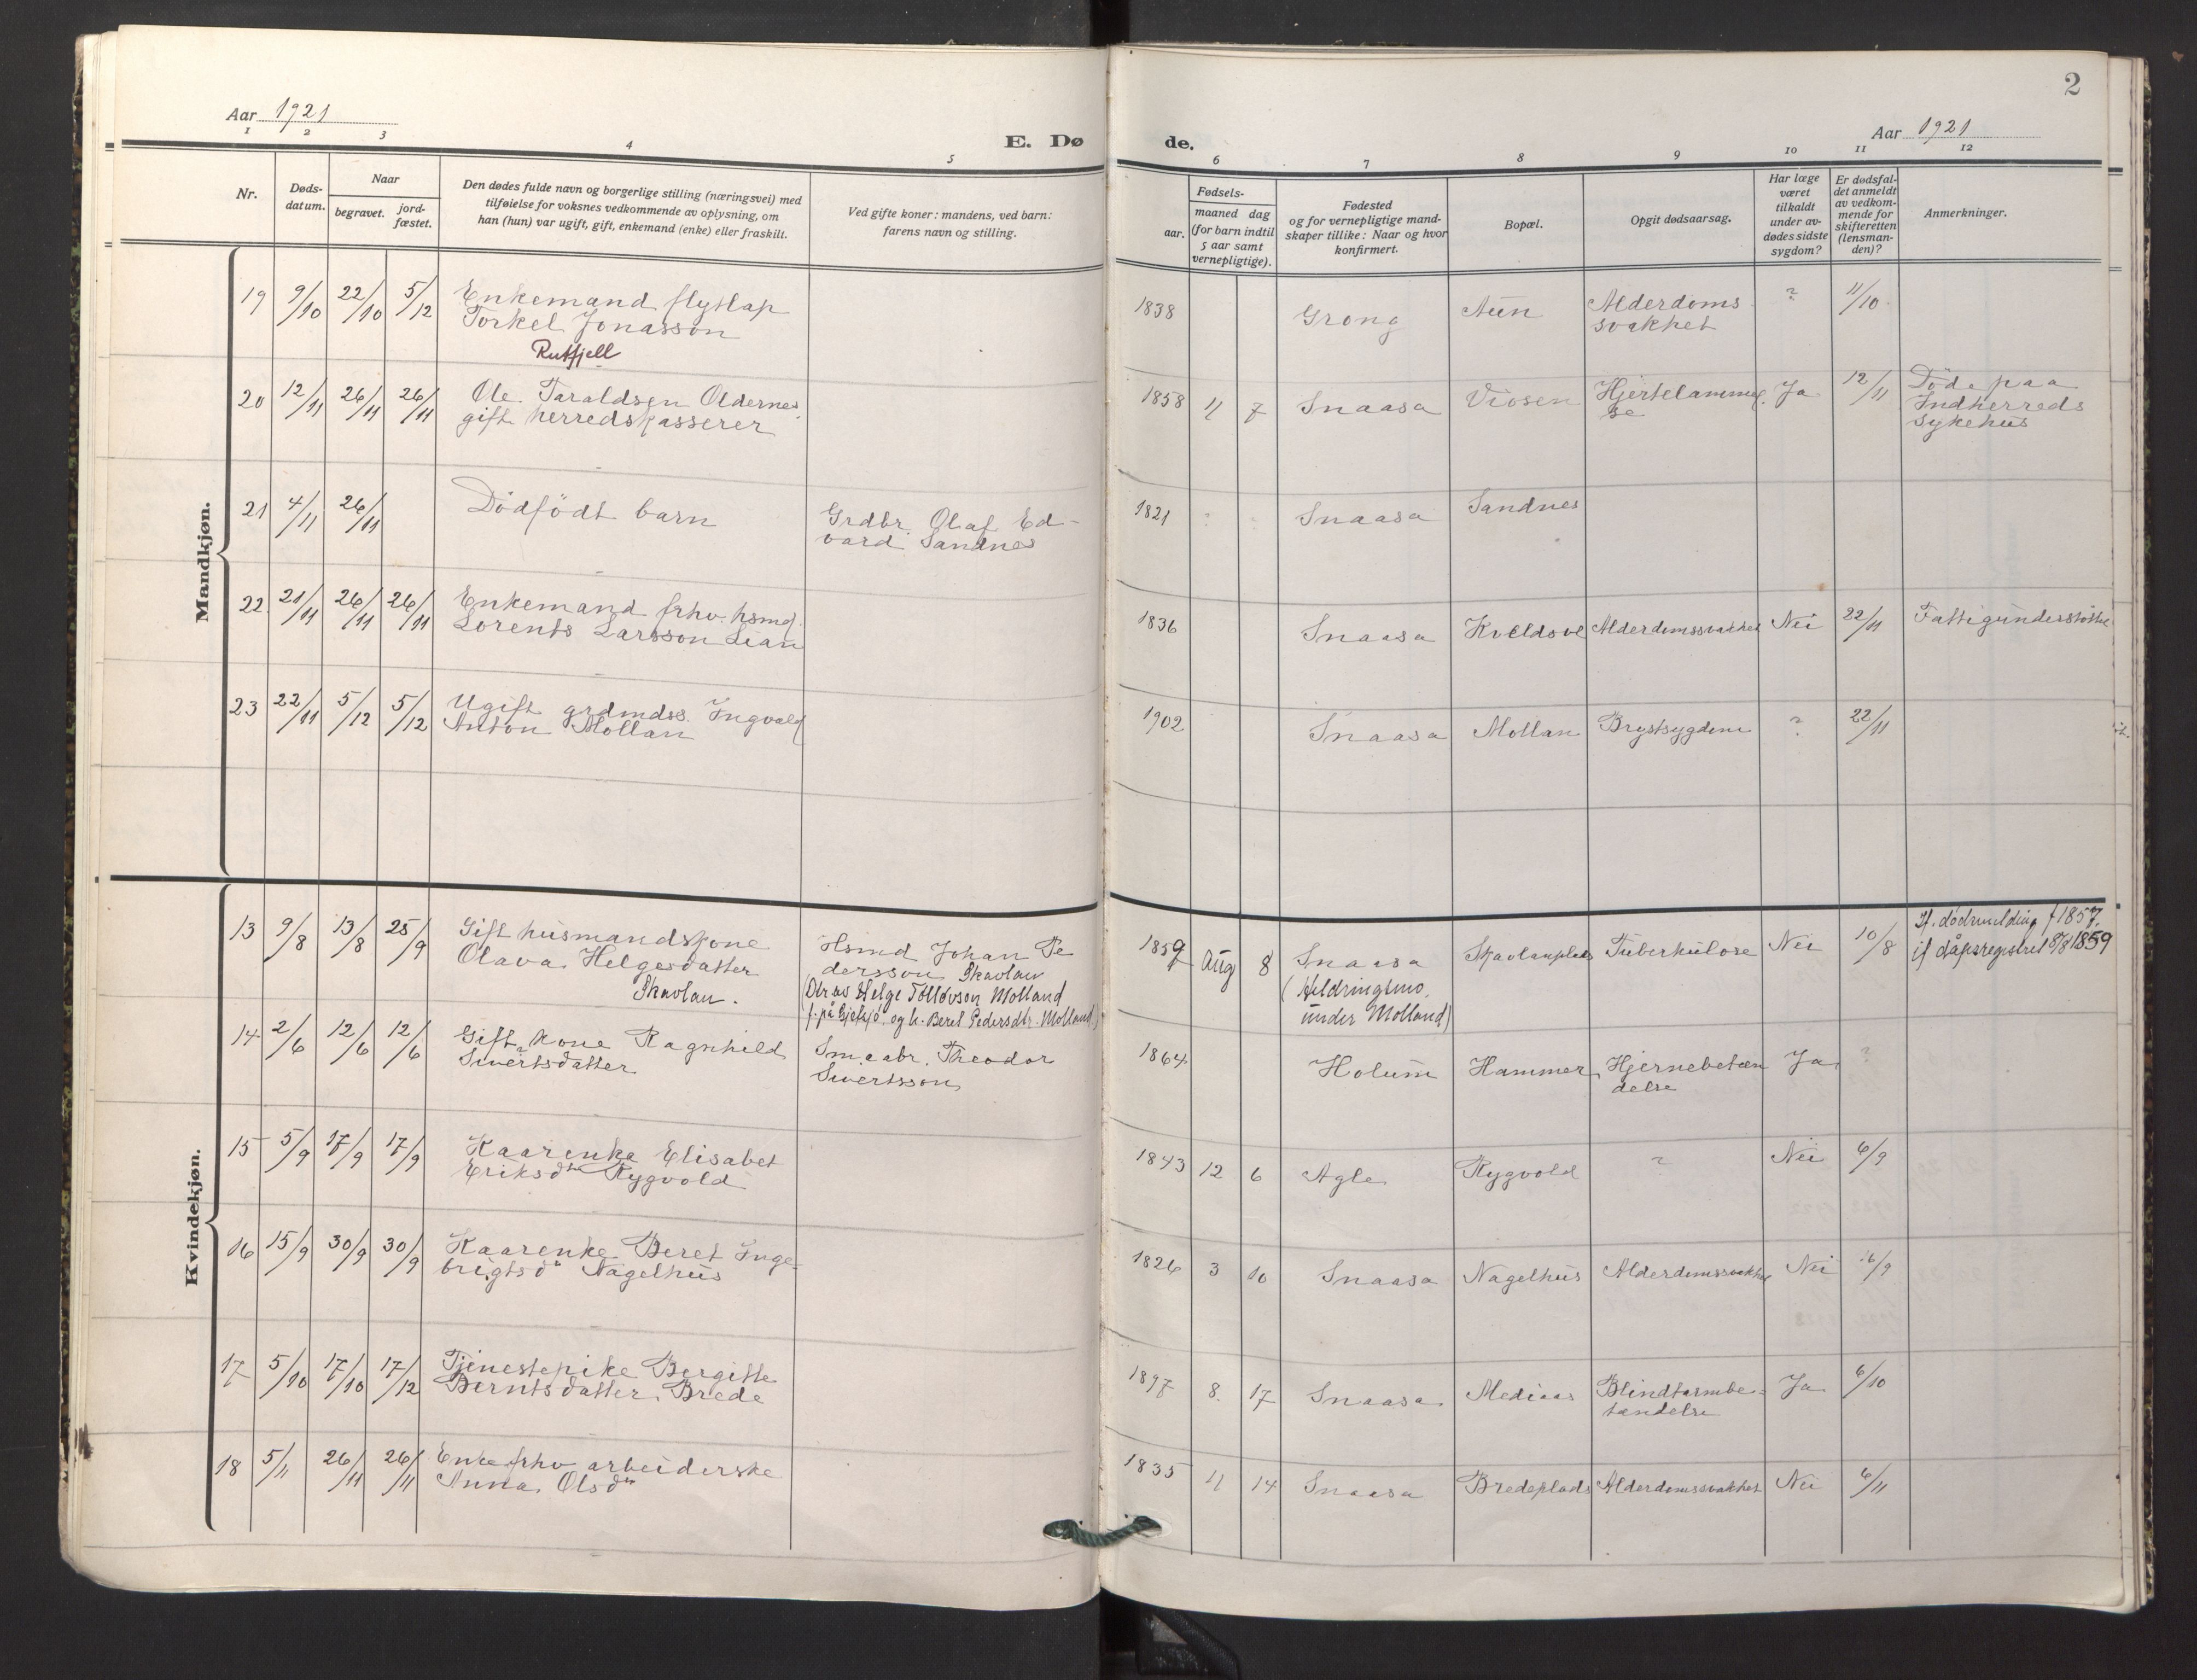 2
Aar 1921
Aar 1921
E. Dø
de.
1 2 3 4 5
6 7 8 9 10 11 12
Nr.
Døds-
datum.
Naar
begravet.
jord-
fæstet.
Den dødes fulde navn og borgerlige stilling (næringsvei) med
tilføielse for voksnes vedkommende av oplysning, om
han (hun) var ugift, gift, enkemand (enke) eller fraskilt.
Ved gifte koner: mandens, ved barn:
farens navn og stilling.
Fødsels-
aar.
maaned dag
(for barn indtil
5 aar samt
vernepligtige).
Fødested
og for vernepligtige mand-
skaper tillike: Naar og hvor
konfirmert.
Bopæl.
Opgit dødsaarsag.
Har læge
været
tilkaldt
under av-
dødes sidste
sygdom?
Er dødsfal-
det anmeldt
av vedkom-
mende for
skifteretten
(lensman-
den)?
Anmerkninger.
Mandkjøn.
19 9/10 22/10 5/12 Enkemand flytlap
Torkel Jonasson
Rutfjell
1838 Grong Aün Alderdoms
svakhet
? 11/10
20 12/11 26/11 26/11 Ole Taraldsen Oldernes
gift herredskasserer
1858 11 7 Snaasa Viosen Hjertelammel
se
Ja 12/11 Døde paa
Indherreds
sykehüs
21 4/11 26/11 Dödfödt barn
Grdbr Olaf Ed-
vard Sandnes
1821 Snaasa Sandnes
22 21/11 26/11 26/11 Enkemand frhv. hsmd.
Lorents Larsson Lian
1836 Snaasa Kveldsve Alderdomssvakhet Nei 22/11 Fattigünderstöttet
23 22/11 5/12 5/12 Ugift grdmdss. Ingvald
Anton Mollan
1902 Snaasa Mollan Brystsygdom ? 22/11
Kvindekjøn.
13 9/8 13/8 25/9 Gift hüsmandskone
Olava Helgesdatter
Skavlan.
Hsmd Johan Pe
dersson Skavlan
(Dtr av Helge Tollevson Molland
f. på Gjefsjø og h. Beret Pedersdtr. Molland)
1859 Aug 8 Snaasa
(
under Molland)
Skavlanplads Tüberkülose Nei 10/8 Jf. dødsmelding f 1857.
jf dåpsregistret 8/8 1859
14 2/6 12/6 12/6 Gift kone Ragnhild
Sivertsdatter
Smaabr. Theodor
Sivertsson
1864 Holüm Hammer Hjernebetæn
delse
Ja ?
15 5/9 17/9 17/9 Kaarenke Elisabet
Eriksdtr Rygvold
1843 12 6 Agle Rygvold ? Nei 6/9
16 15/9 30/9 30/9 Kaarenke Beret Inge-
brigtsdtr Nagelhüs
1826 3 10 Snaasa Nagelhüs Alderdomssvakhet Nei 16/9
17 5/10 17/10 17/12 Tjenestepike Bergitte
Berntsdatter Brede
1897 8. 17 Snaasa Mediaas Blindtarmbe-
tændelse
Ja 6/10
18 5/11 26/11 26/11 Enke frhv arbeiderske
Anna Olsdtr
1835 11 14 Snaasa Bredeplads Alderdomssvakhet Nei 6/11